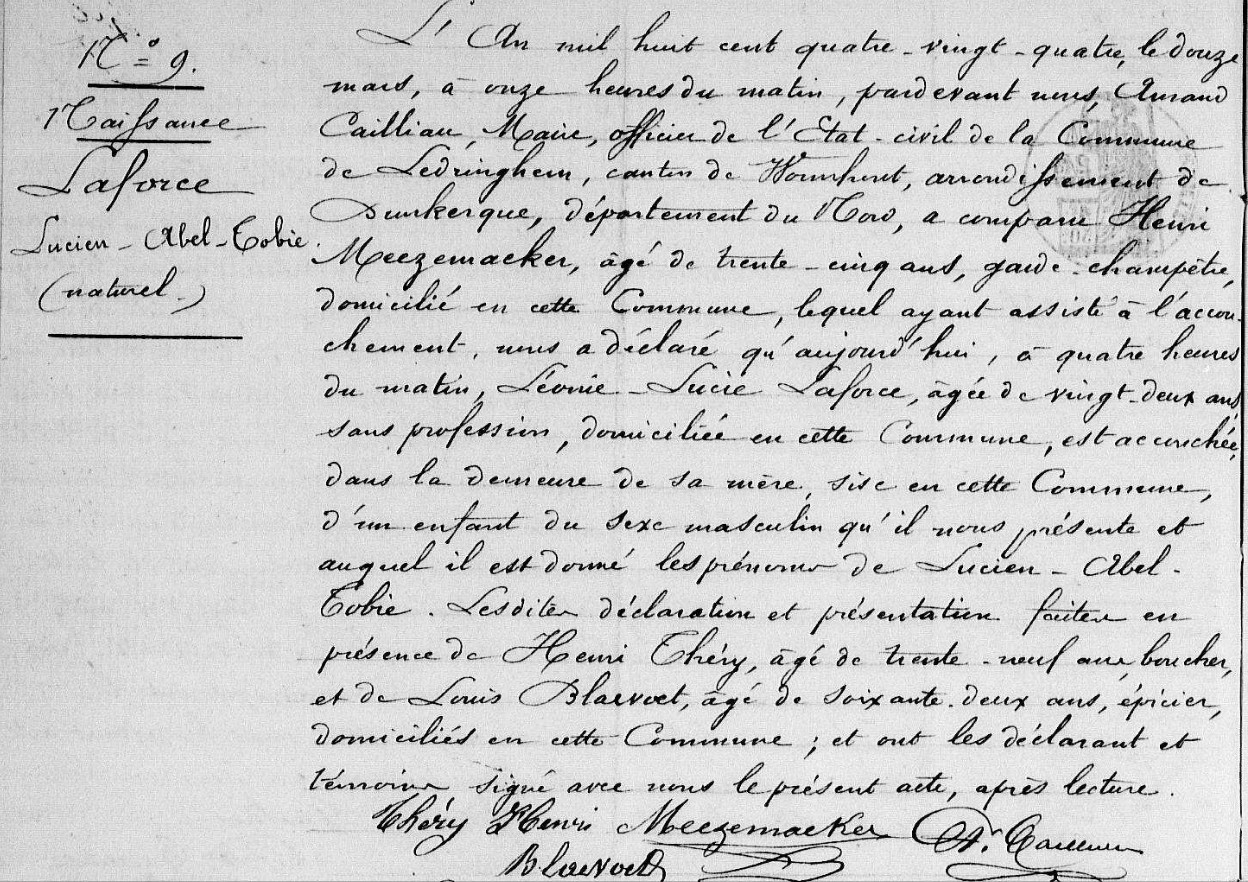 N° 9.
Naissance
Laforce
Lucien - Abel - Tobie.
(naturel -)
L'An mil huit cent quatre-vingt-quatre, le douze
mars, à onze heures du matin, pardevant nous, Amand
Cailliau, Maire, officier de l'Etat-civil de la Commune
de Ledringhem, canton de Wormhout, arrondissement de
Dunkerque, département du Nord, a comparu Henri
Meezemaecker, âgé de trente-cinq ans, garde-champêtre,
domicilié en cette Commune, lequel ayant assisté à l'accou-
chement, nous a déclaré qu'aujourd'hui, à quatre heures
du matin, Léonie - Lucie Laforce, âgée de vingt-deux ans
sans profession, domiciliée en cette Commune, est accouchée,
dans la demeure de sa mère, sise en cette Commune,
d'un enfant du sexe masculin qu'il nous présente et
auquel il est donné les prénoms de Lucien - Abel -
Tobie. Lesdites déclaration et présentation faites en
présence de Henri Théry, âgé de trente-neuf ans, boucher,
et de Louis Blaevoet, âgé de soixante-deux ans, épicier,
domiciliés en cette Commune ; et ont les déclarant et
témoins signé avec nous le présent acte, après lecture.
Théry Henri Meezemaecker
Blaevoet